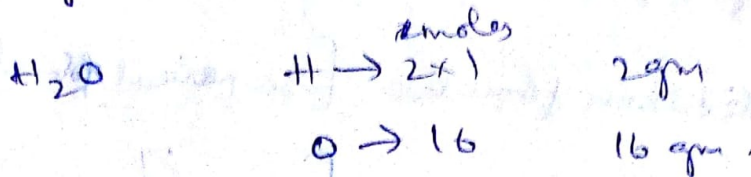 moles
H₂O H → 2×1 2gm
O → 16 16 gm.